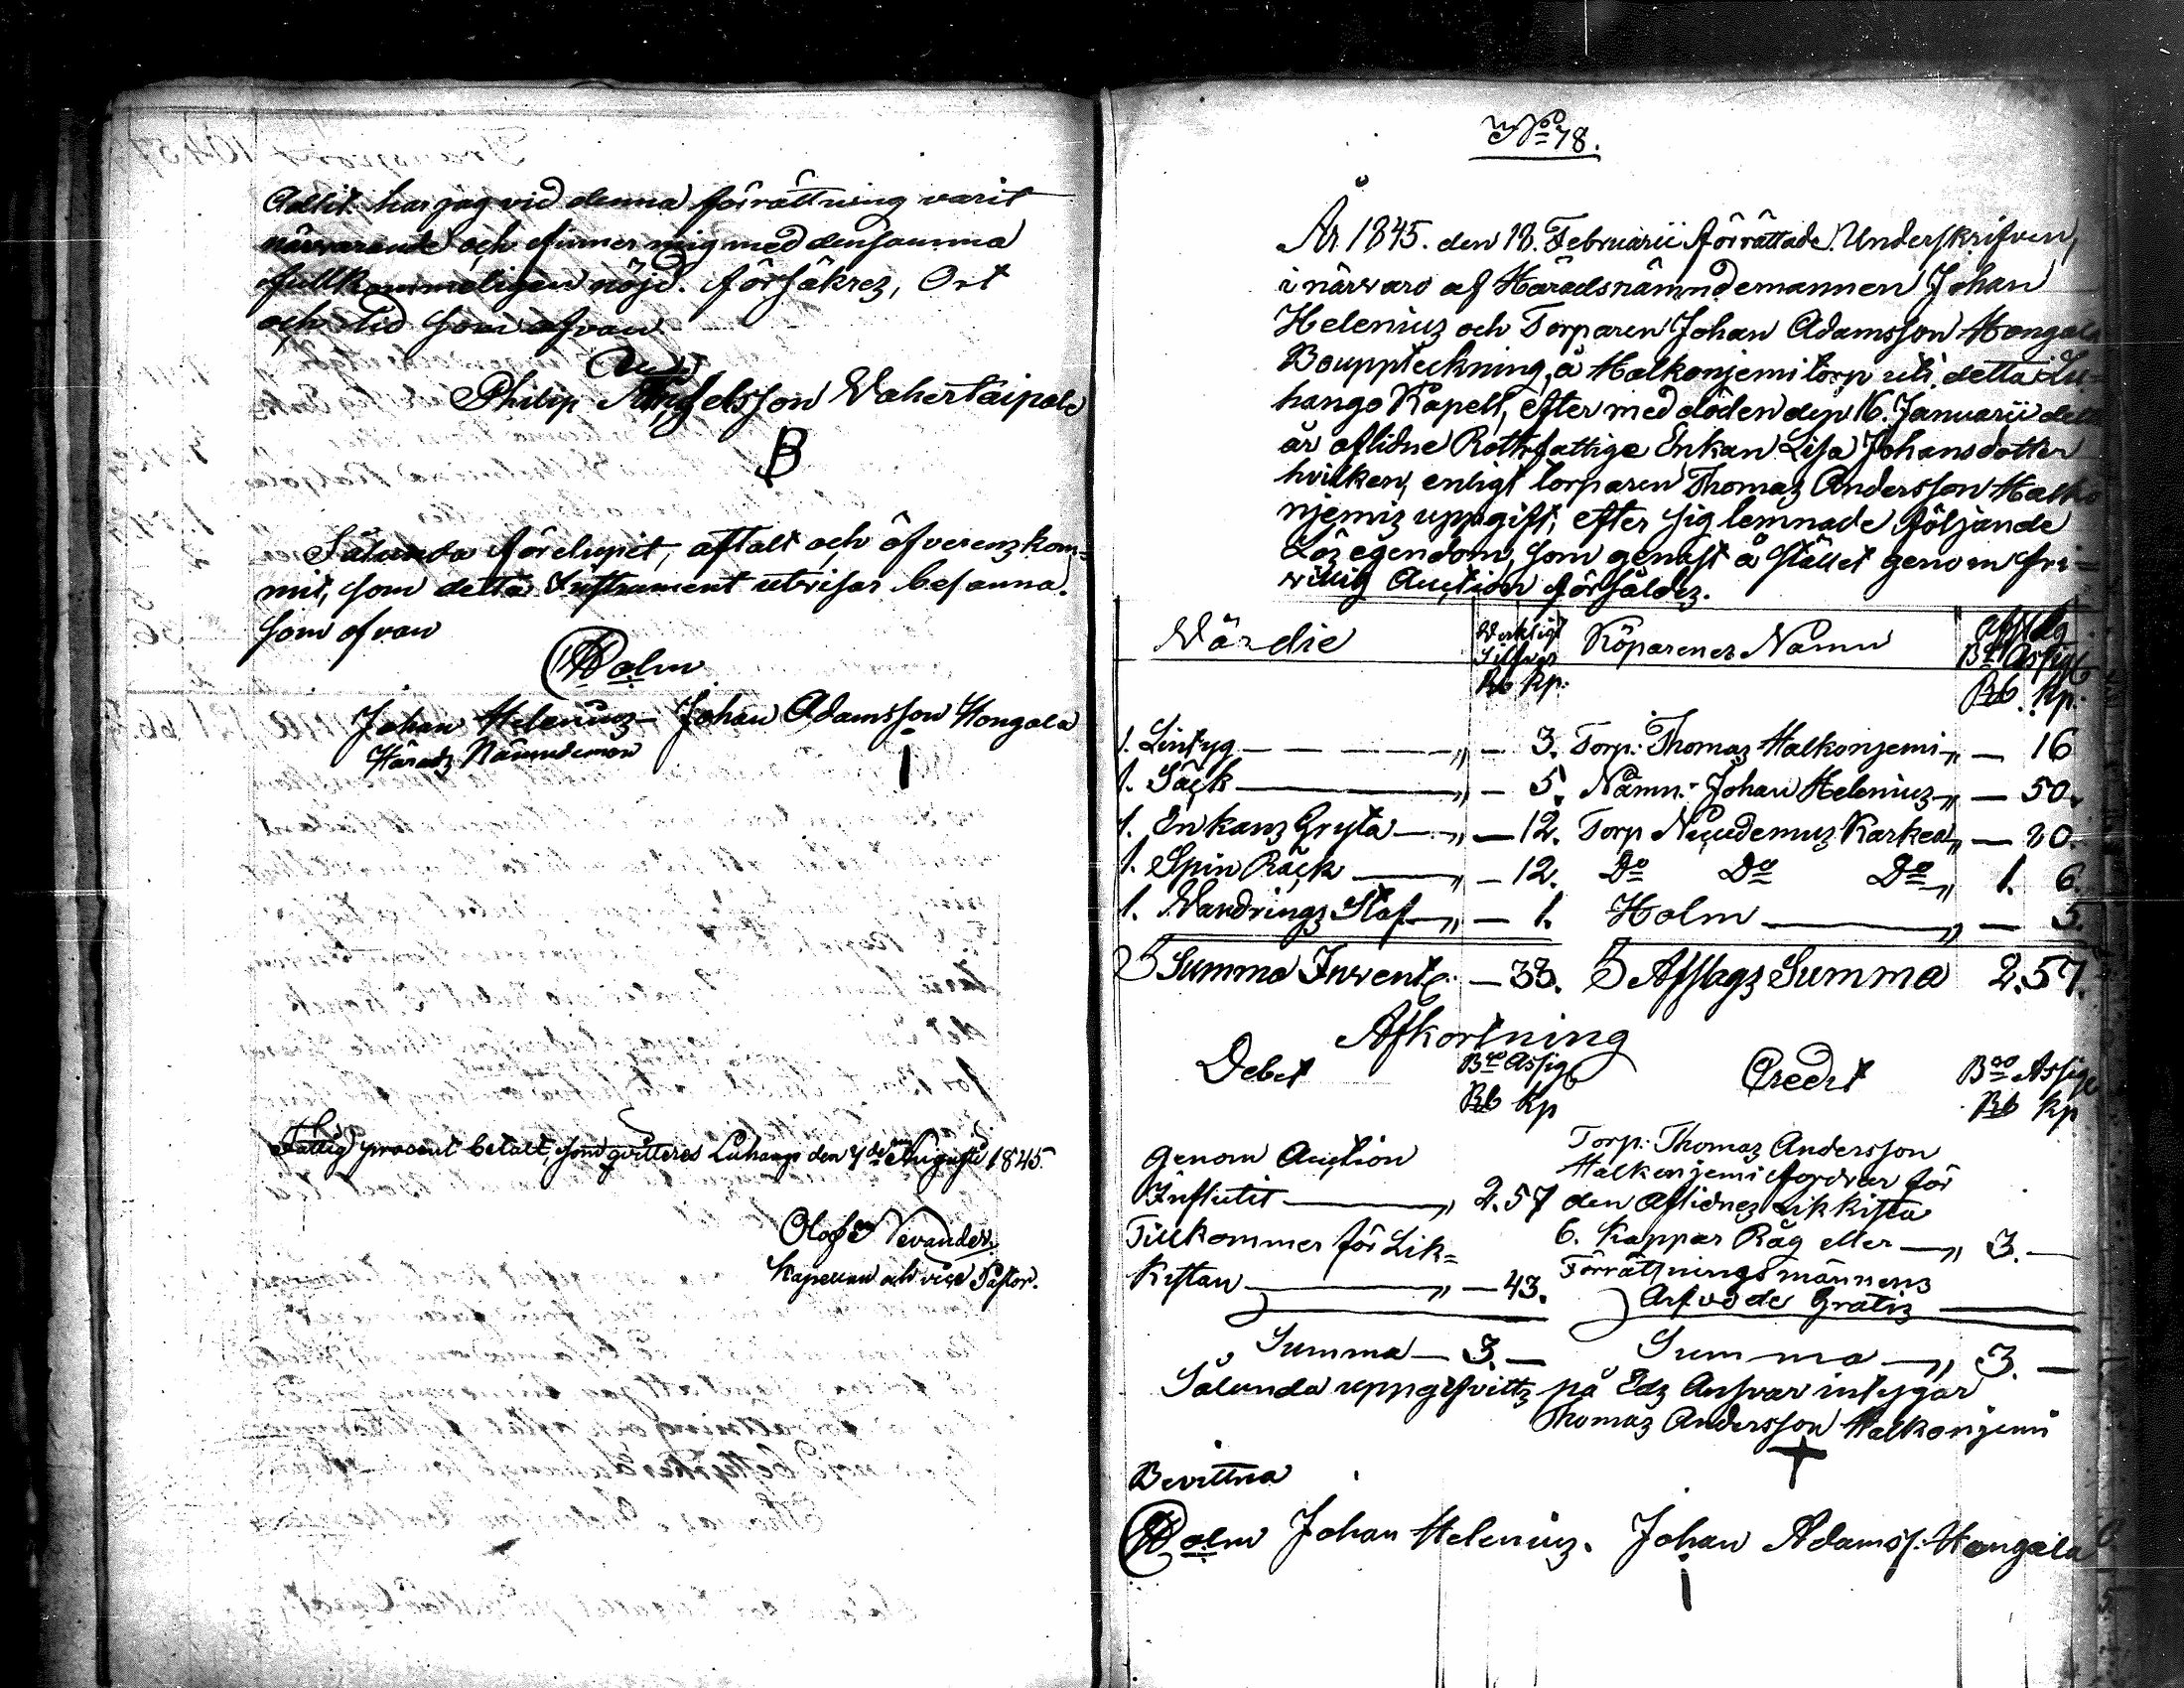 Altit har jag vid denna förrättning varit
närvarande och finner mig med densamma
fullkommeligen nöjd. försäkrez, Ort
och tid som ofvan
Philip Wahertaipale
B
Sålunda förelupit, aftalt och öfverenzkom=
mit, som detta Instrument utvisar besanna.
som ofvan
Holm
Johan Heleniuz Johan Adamsson Hongala
Häradz Nämndeman
Fattig procent betalt, som qvitteras Luhango den 7de Augusti 1845.
Olof Nevander
Kapellan och vice Pastor.
No 78.
År 1845. den 18. Februarii förrättade Underskrifven,
i närvaro af Häradsnämndemannen Johan
Heleniuz och Torparen Johan Adamsson Hongala
Bouppteckning, å Halkonjemi torp uti detta Lu=
hango Kapell, efter med döden den 16. Januarii detta
år aflidne Rothfattige Enkan Lisa Johansdotter
hvilken, enligt torparen Thomaz Andersson Halko
njemiz uppgift, efter sig lemnade följande
Löz egendom, som genast å stället genom fri=
villig Auction försåldez.
Värdie Silfver Köparenez Namn Afslag
Bco Assign
Rb Kp. Rb. Kp.
1. Lintyg — " — 3. Torp: Thomaz Halkonjemi " — 16
1. Säck — " — 5. Nämn: Johan Heleniuz " — 50.
1. Enkanz Gryta — " — 12. Torp Nicudemuz Karkea " — 80.
1. Spin Råck — " — 12. Do Do Do " 1. 6.
1. Vandringz Staf — " — 1. Holm — " — 5.
Summa Invent. — 33. Afslagz Summa 2.57.
Afkortning
Debet Bco Assign Credit Bco Assign
Rb Kp Rb Kp
Genom Auction Torp: Thomaz Andersson
Halkonjemi fordrar för
Influtit — " 2.57 den Aflidnez Likkista
Tillkommer för Lik= 6. Kappar Råg eller — " 3. —
Kistan — " — 43. Förrättningsmännens
Arfvode Gratiz —
Summa — 3. — Summa — " 3. —
Sålunda uppgifvittz på Edz Ansvar intygar
Thomaz Andersson Halkonjemi
Bevittna
Holm Johan Heleniuz. Johan Adamss: Hongala